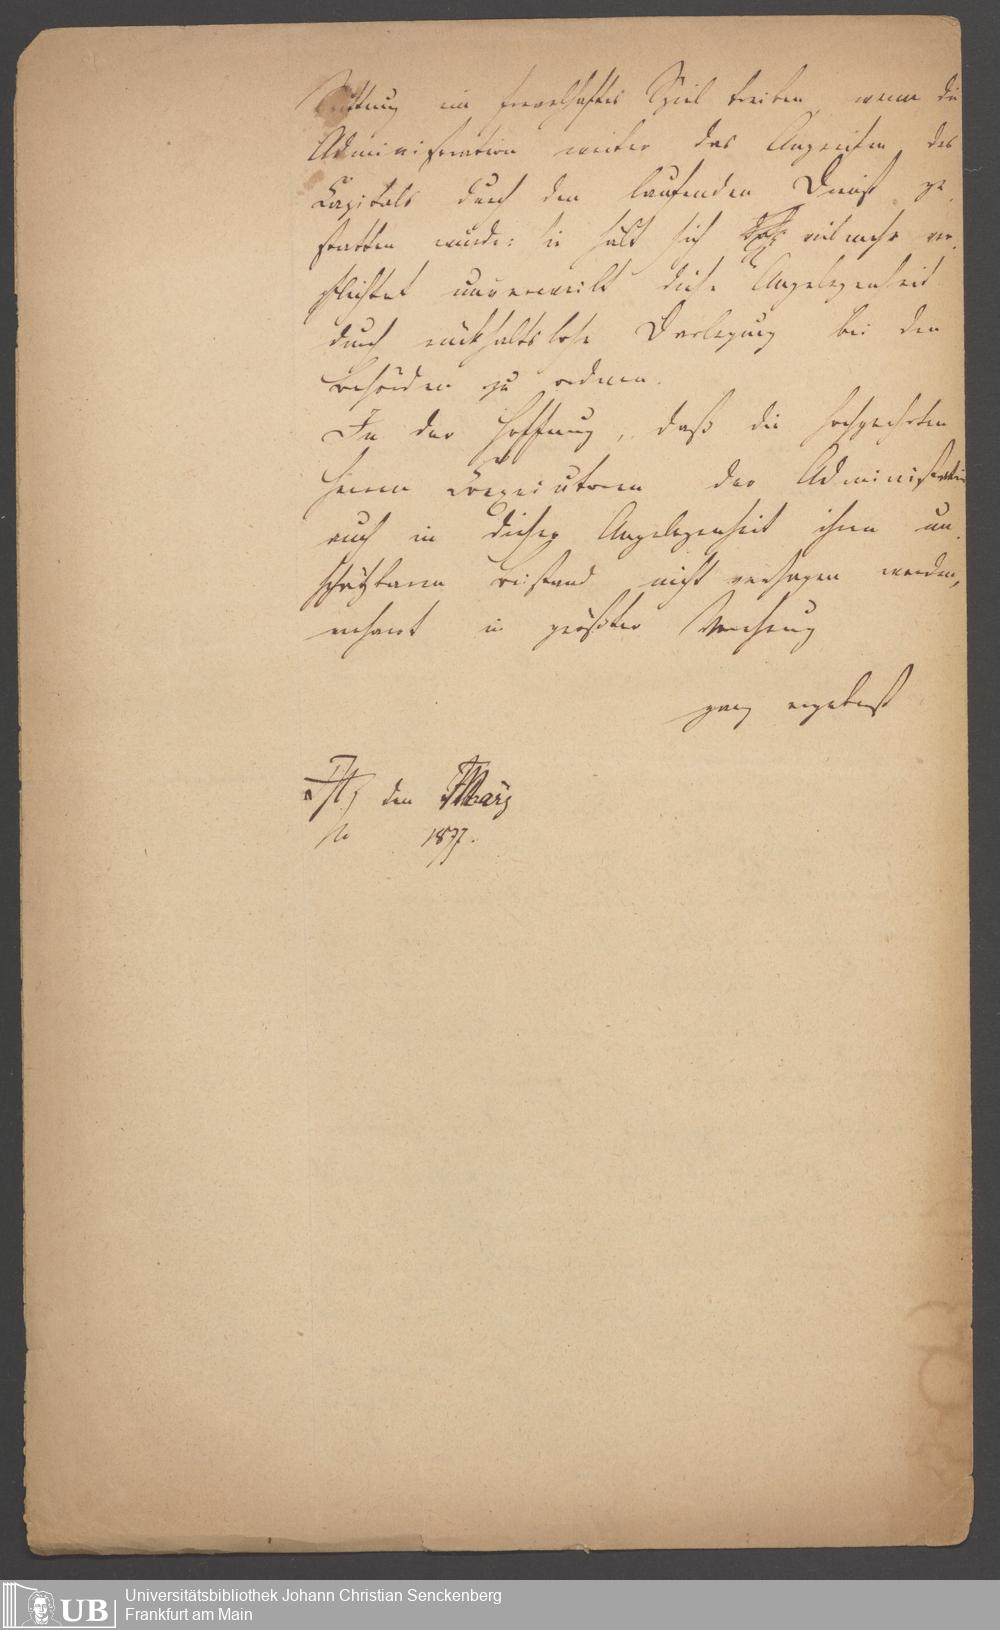 Stiftung ein frevelhaftes Spiel treiben, wenn die
Administration weiter das Angreifen des
Capitals durch den laufenden Dienst ge¬
statten würde: sie hält sich vielmehr ver¬
pflichtet unverweilt diese Angelegenheit
durch rückhaltslose Darlegung bei den
Behörden zu ordnen.
In der Hoffnung, daß die hochgeehrten
Herren Executoren der Administration
auch in dieser Angelegenheit ihren un¬
schätzbaren Beistand nicht versagen werden,
verharrt in größter Verehrung
ganz ergebenst
den März
1877.
Universitätsbibliothek Johann Christian Senckenberg
Frankfurt am Main
UB